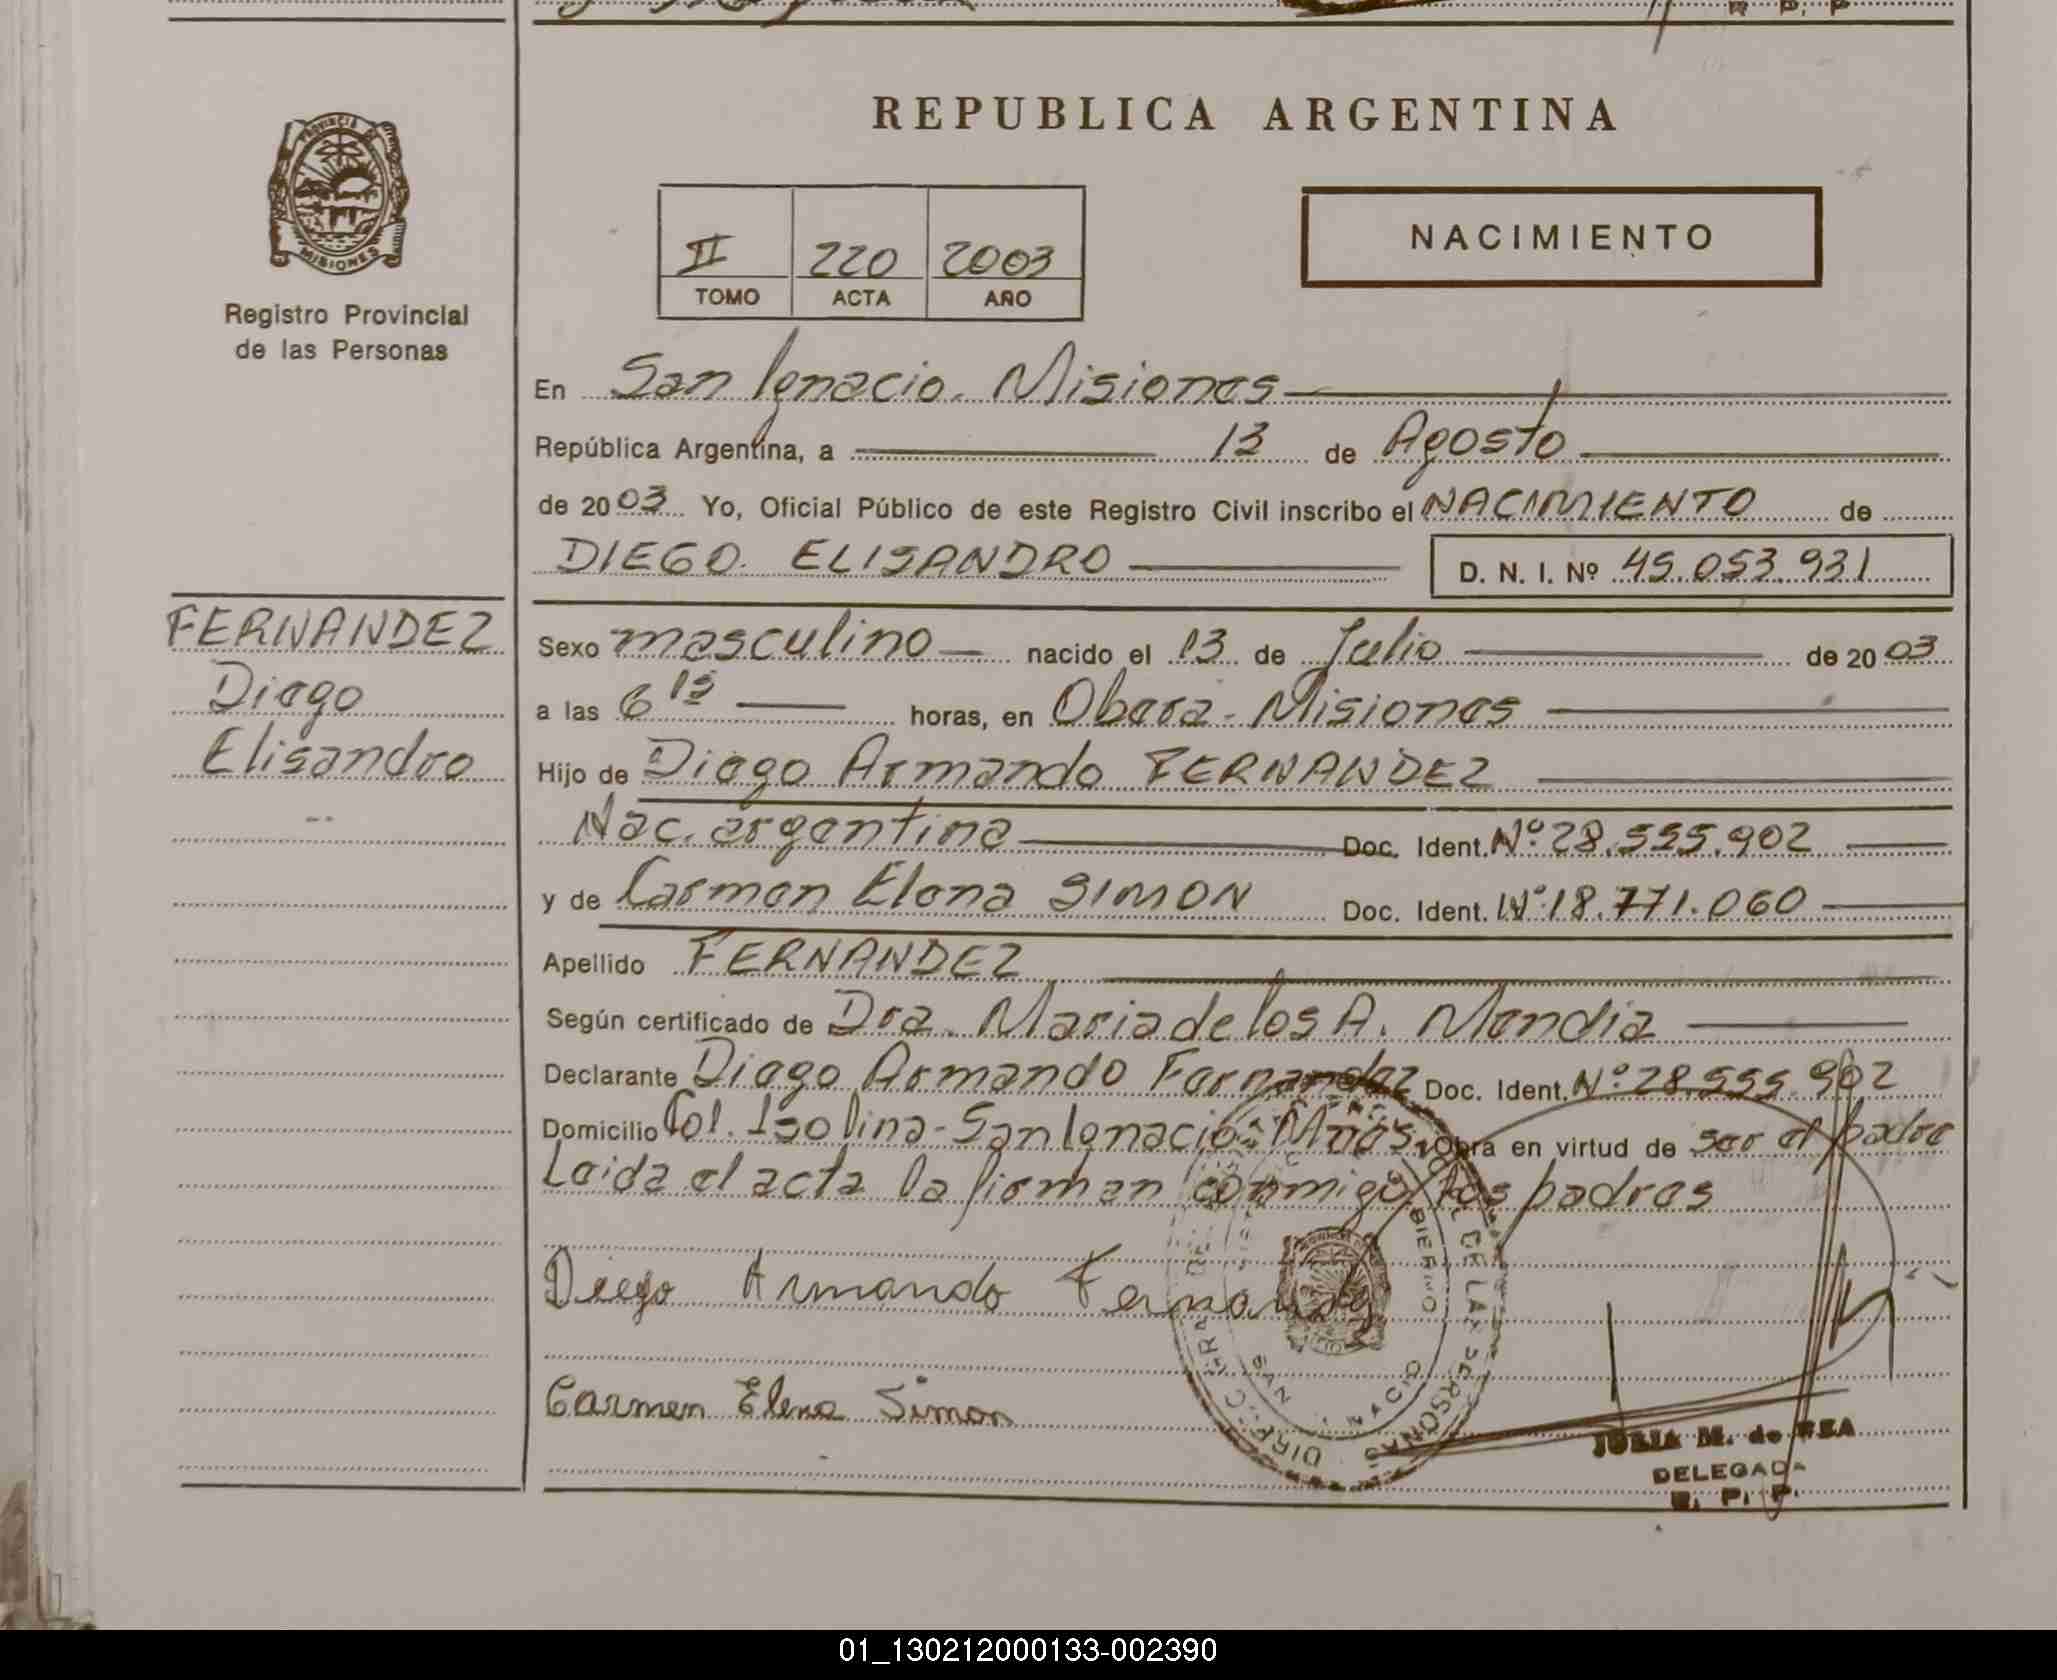 REPUBLICA ARGENTINA
PROVINCIA DE
MISIONES
Registro Provincial
de las Personas
II 220 2003
TOMO ACTA AÑO
NACIMIENTO
En San Ignacio. Misiones
República Argentina, a 13 de Agosto
de 2003 Yo, Oficial Público de este Registro Civil inscribo el NACIMIENTO de
DIEGO ELISANDRO D. N. I. Nº 45.053.931
FERNANDEZ
Diego
Elisandro
Sexo masculino nacido el 13 de Julio de 2003
a las 6 15 horas, en Obera - Misiones
Hijo de Diego Armando FERNANDEZ
Nac. argentina Doc. Ident. Nº 28.555.902
y de Carmen Elena SIMON Doc. Ident. Nº 18.771.060
Apellido FERNANDEZ
Según certificado de Dra. Maria de los A. Mendia
Declarante Diego Armando Fernandez Doc. Ident. Nº 28.555.902
Domicilio Col. Isolina - San Ignacio - Mnes. Obra en virtud de ser el padre
Leida el acta la firman conmigo los padres
Diego Armando Fernandez
Carmen Elena Simon
JULIA M. de REA
DELEGADA
R. P. P.
01_130212000133-002390